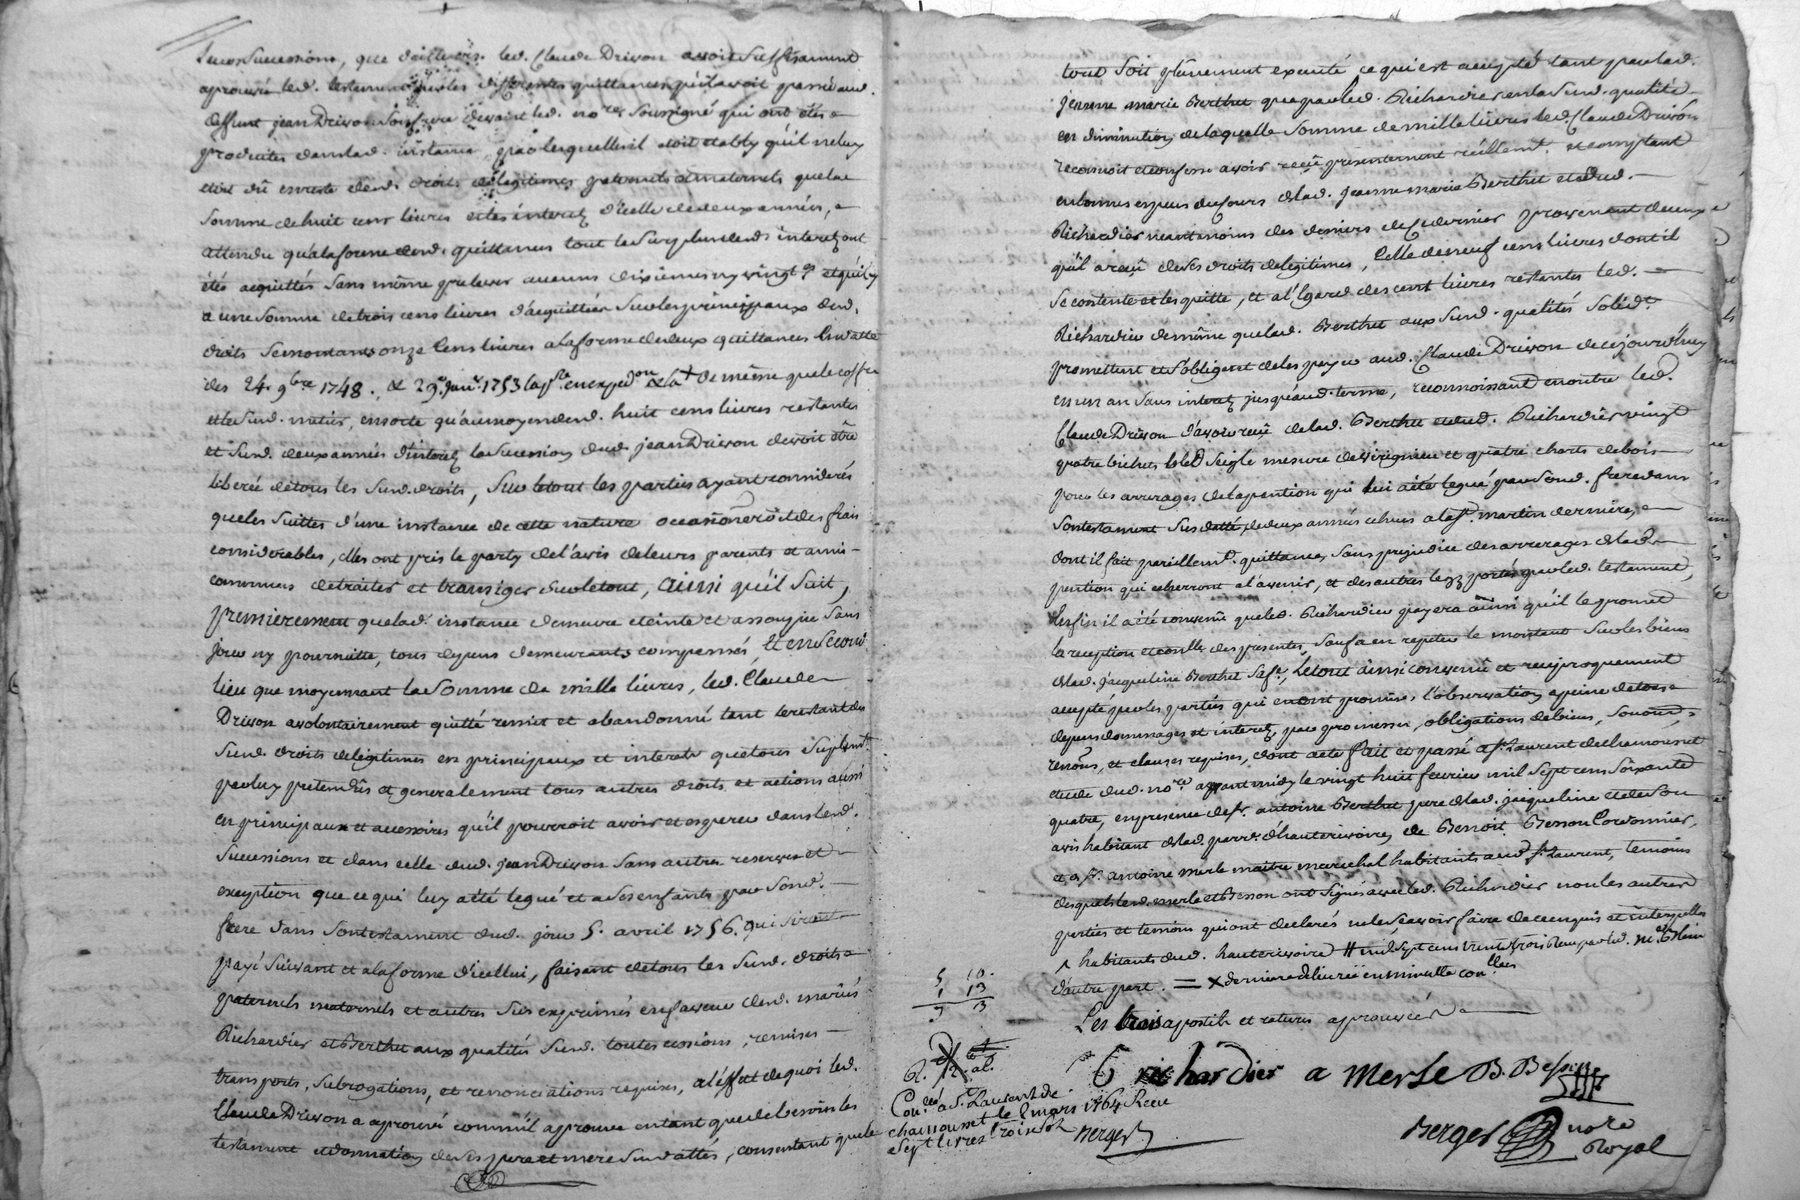 leurs successions, que d'ailleurs led. Claude Drivon avoit suffisament
aprouvé led. testament par les differentes quittances qu'il avoit passé aud.
deffunt jean Drivon son frere devant led. no.re soussigné qui ont étés
produites dans lad. instance, par lesquelles il étoit etably qu'il ne luy
étoit dû en reste desd. droits de legitimes paternels et maternels que la
somme de huit cens livres et les interetz d'icelle de deux années,
attendu qu'a la forme desd. quittances tout le surplus desd. interetz ont
étés acquittés sans même prelever aucuns dixiemes ny vingt.es et qu'il y
a une somme de trois cens livres d'acquittée sur les principaux desd.
droits se montants onze cens livres a la forme de deux quittances en datte
des 24. 9bre 1748. & 29. janv. 1753 de même que le coffre
et le susd. metier, en sorte qu'au moyen desd. huit cens livres restantes
et susd. deux années d'interetz la succession dud. jean Drivon devoit être
liberée de tous les susd. droits, sur le tout les parties ayant considerés
que les suittes d'une instance de cette nature occasionneroit des frais
considerables, elles ont pris le party de l'avis de leurs parents et amis
communs de traiter et transiger sur le tout, ainsi qu'il suit,
premierement que lad. instance demeure eteinte et assoupie sans
jour ny poursuitte, tous depens demeurants compensés et en second
lieu que moyennant la somme de mille livres, led. Claude
Drivon a volontairement quitté remis et abandonné tant le restant des
susd. droits de legitimes en principaux et interets que tous suplem.ts
par luy pretendûs et generalement tous autres droits et actions aussi
en principaux et accessoires qu'il pourroit avoir et esperer dans lesd.
successions et dans celle dud. jean Drivon sans autre reserve et
exception que ce qui luy a été legué et a ses enfants par sond.
frere dans son testament dud. jour 5. avril 1756. qui seront
payé suivant et a la forme d'icellui, faisant de tous les susd. droits
paternels maternels et autres sus exprimés en faveur desd. mariés
Richardier et Berthet aux qualités susd. toutes cessions, remises
transports, subrogations, et renonciations requises, a l'effet de quoi led.
Claude Drivon a aprouvé comm'il aprouve en tant que de besoin les
testament et donnation de ses pere et mere susdattés, consentant que le
tout soit plainement executé ce qui est accepté tant par lad.
jeanne marie Berthet que par led. Richardier en la susd. qualité
en diminution de laquelle somme de mille livres led. Claude Drivon
reconnoit et confesse avoir reçû presentement réellem.t et comptant
en bonnes especes de cours de lad. jeanne marie Berthet et dud.
Richardier neantmoins des deniers de ce dernier provenant de ceux
qu'il a reçû de ses droits de legitimes, celle de neuf cens livres dont il
se contente et les quitte, et a l'égard des cent livres restantes led.
Richardier de même que lad. Berthet aux susd. qualités solid.t
promettent et s'obligent de les payer aud. Claude Drivon de ce jourd'huy
en un an sans interetz jusqu'aud. terme, reconnoissant en outre led.
Claude Drivon d'avoir reçû de lad. Berthet et dud. Richardier vingt
quatre bichets bled seigle mesure de virigneu et quatre chards de bois
pour les arrerages de la pention qui lui a été legué par sond. frere dans
son testament sus datté, de deux années echues a la st. martin derniere,
dont il fait pareillem.t quittance, sans prejudice des arrerages de lad.
pention qui echerront a l'avenir, et des autres legs portés par led. testament,
Enfin il a été convenû que led. Richardier payera ainsi qu'il le promet
la reception et conlle des presentes, sauf a en repeter le montant sur les biens
de lad. jacqueline Berthet sa fe., Le tout ainsi convenû et reciproquement
accepté par les parties qui en ont promis l'observation a peine de tous
depens dommages et interetz, par promesses, obligations de biens, soumis,
renons, et clauses requises, dont acte fait et passé a st. Laurent de chamousset
etude dud. no.re avant midy le vingt huit fevrier mil sept cens soixante
quatre, en presence de sr. antoine Berthet pere de lad. jacqueline et de son
avis habitant de lad. parr.e d'hauterivoire, de Benoit Besson Cordonnier,
et de sr. antoine merle maitre marechal habitants aud. st. Laurent, temoins
desquels led. merle et Besson ont signés avec led. Richardier non les autres
parties et temoins qui ont declarés ne le sçavoir faire de ce enquis et interpellés
^ habitants dud. hauterivoire # mil sept cens trente trois
d'autre part. = x derniere delivrée en minutte con.llée
Les trois apostils et ratures aprouvées
5 10.
1 13
C richardier a merle B. Besson
Con.llé a St. Laurent de
chamousset le 2 mars 1764 Reçu
sept livres trois sols
Berger
Berger no.re
Royal